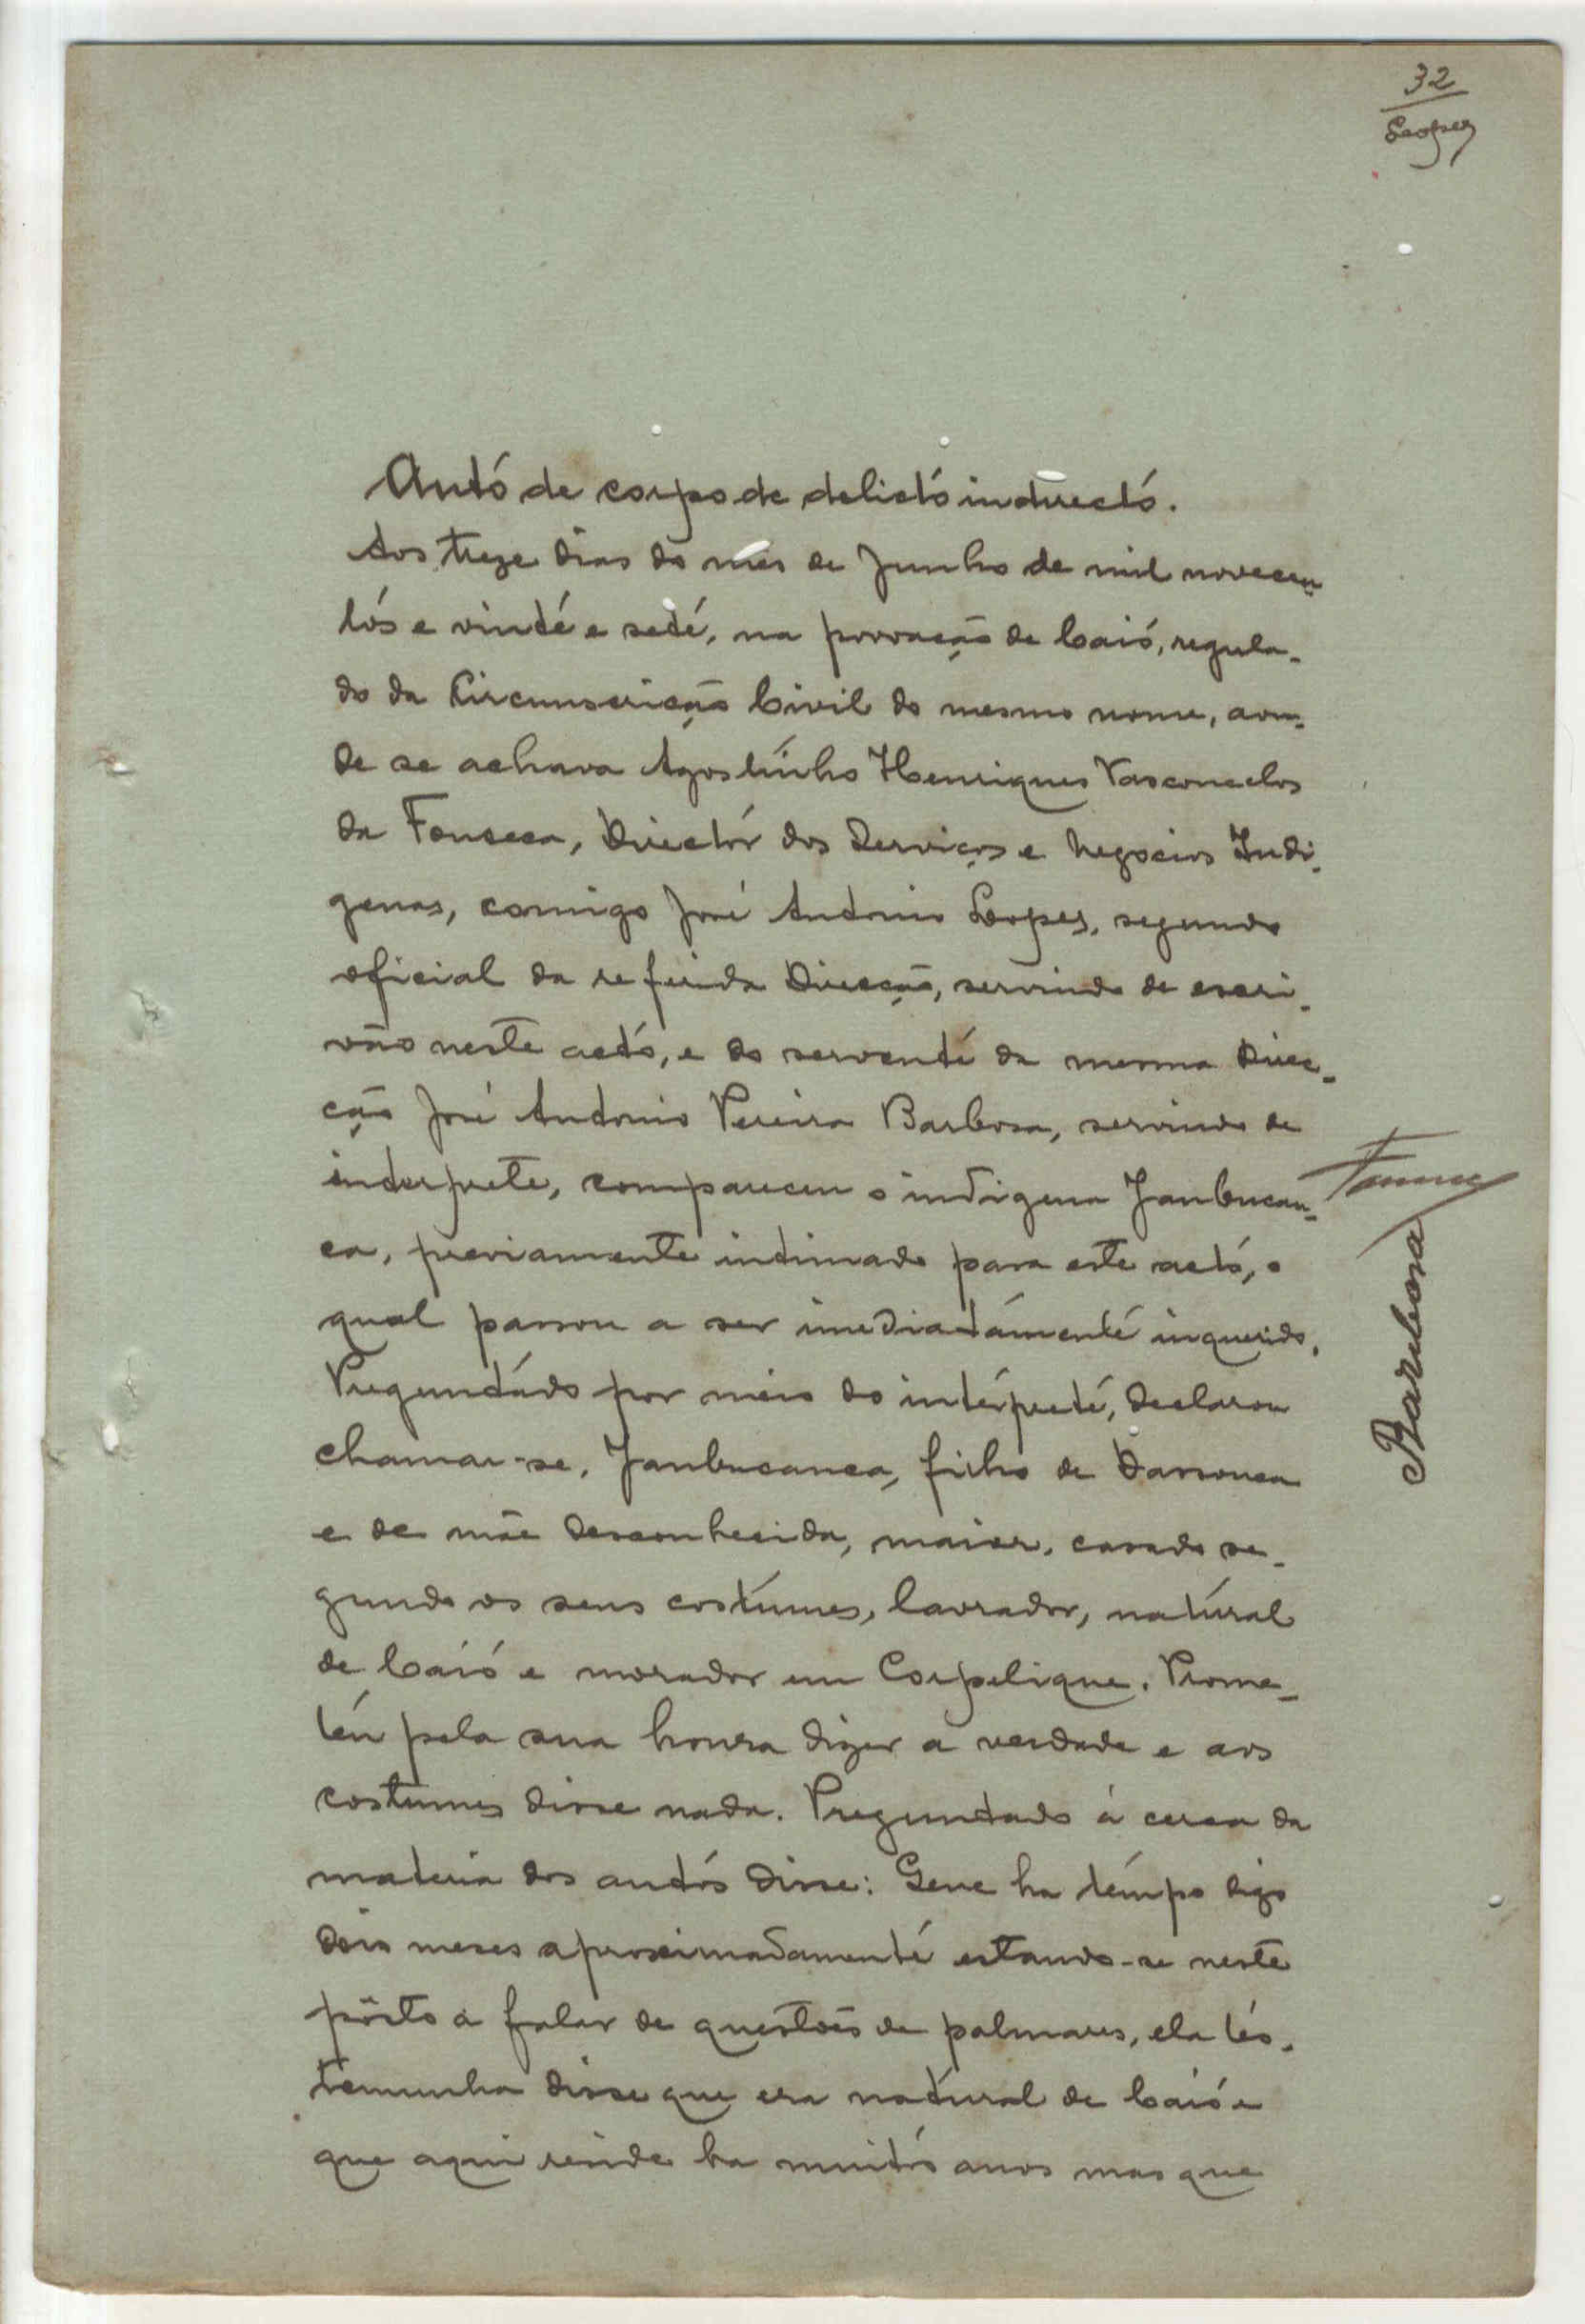 32
Lopes
Auto de corpo de delicto indirecto.
Aos treze dias do mês de Junho de mil novecen-
tos e vinte e sete, na povoação de Caió, regula-
do da Circunscrição Civil do mesmo nome, aon-
de se achava Agostinho Henriques Vasconcelos
da Fonseca, Director dos Serviços e Negocios Indi-
genas, comigo José Antonio Lopes, segundo
oficial da referida Direcção, servindo de escri-
vão neste acto, e do servente da mesma Direc-
ção José Antonio Pereira Barbosa, servindo de
interprete, compareceu o indigena Janbucan-
ca, previamente intimado para este acto, o
qual passou a ser imediatamente inquerido.
Preguntado por meio do intérprete, declarou
chamar-se, Janbucanca, filho de Dassouca
e de mãe desconhecida, maior, casado se-
gundo os seus costumes, lavrador, natural
de Caió e morador em Corpelique. Prome-
teu pela sua honra dizer a verdade e aos
costumes disse nada. Preguntado á cerca da
materia dos autos disse: Que ha tempo digo
dois meses aproximadamente estando-se neste
pôsto a falar de questões de palmares, ela tes-
temunha disse que era natural de Caió e
que aqui reside ha muitos anos mas que
Barbosa